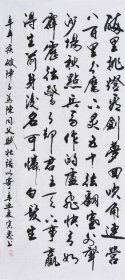 醉里挑灯看剑梦回吹角连营
八百里分麾下炙五十弦翻塞外声
沙场秋点兵马作的卢飞快弓如
霹雳弦惊了却君王天下事赢
得生前身后名可怜白发生
辛弃疾破阵子为陈同父赋壮语以寄